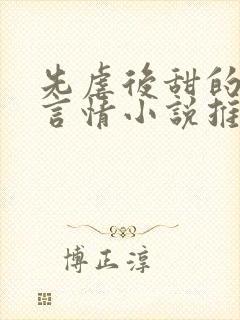 先虐後甜的
言情小説推
博正淳